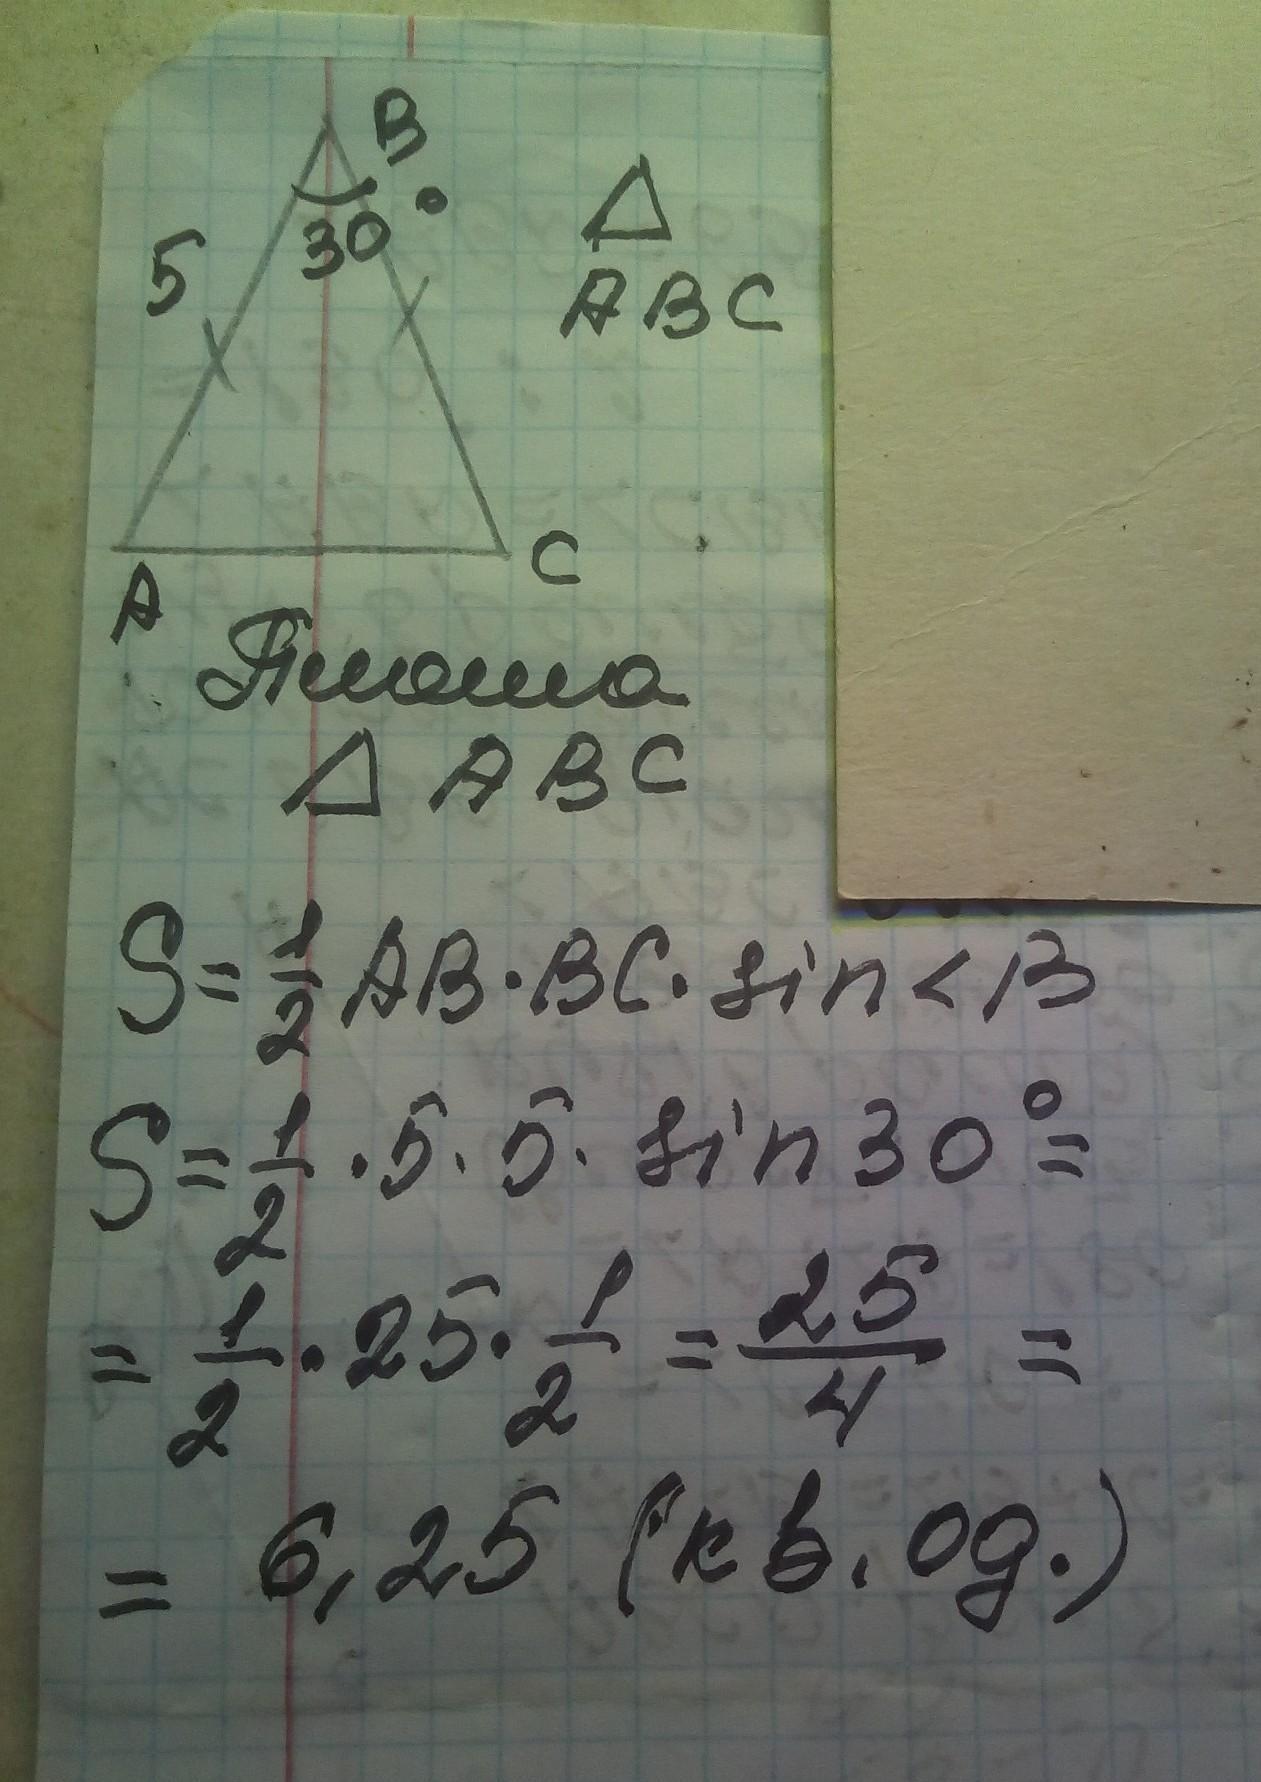 B
30°
5
△
ABC
A
C
Площа
△ ABC
S = 1/2 AB · BC · sin < B
S = 1/2 · 5 · 5 · sin 30° =
= 1/2 · 25 · 1/2 = 25/4 =
= 6,25 (кв. од.)